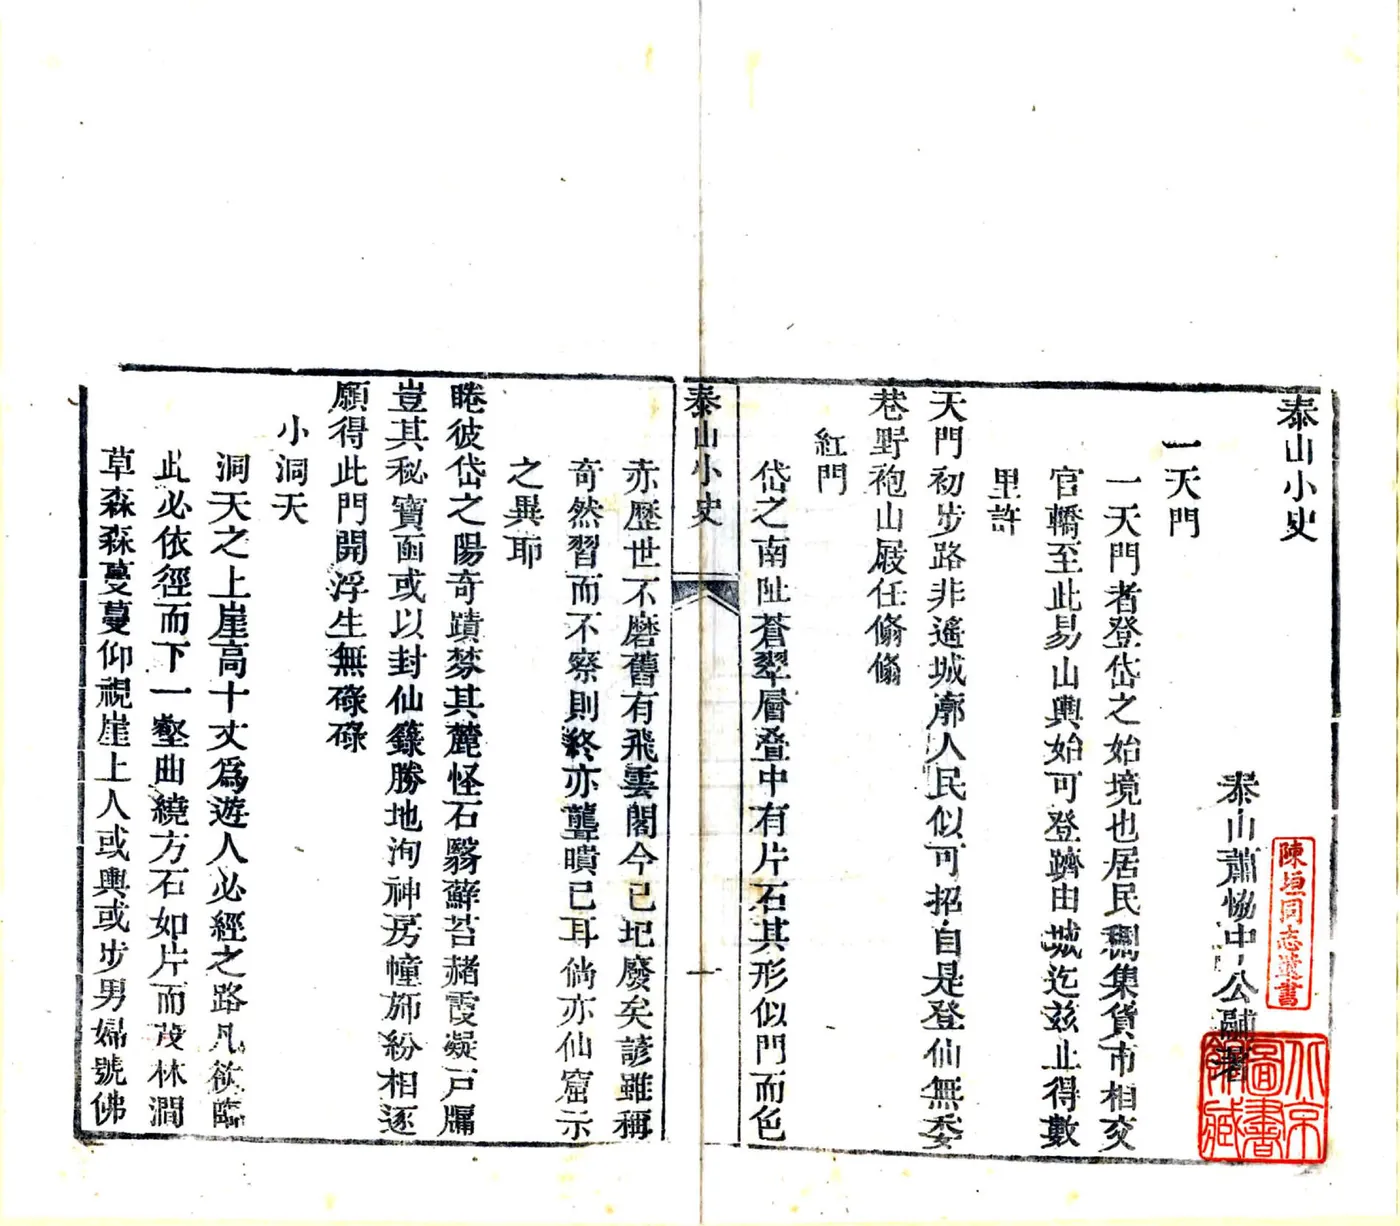 泰山小史
泰山蕭協中公黼著
一天門
一天門者登岱之始境也居民稠集貨市相交
官轎至此易山輿始可登躋由城迄茲止得數
里許
天門初步路非遙城廓人民似可招自是登仙無委
巷野袍山屐任翛翛
紅門
岱之南阯蒼翠層叠中有片石其形似門而色
泰山小史
一
赤歷世不磨舊有飛雲閣今已圮廢矣諺雖稱
奇然習而不察則終亦聾聵已耳倘亦仙窟示
之異耶
睠彼岱之陽奇蹟棼其麓怪石翳蘚苔赭霞凝戸牖
豈其秘寶函或以封仙籙勝地洵神房幢斾紛相逐
願得此門開浮生無碌碌
小洞天
洞天之上崖高十丈爲遊人必經之路凡欲臨
此必依徑而下一壑曲繞方石如片而茂林澗
草森森蔓蔓仰視崖上人或輿或步男婦號佛
陳垣同志遺書
北京圖書館藏